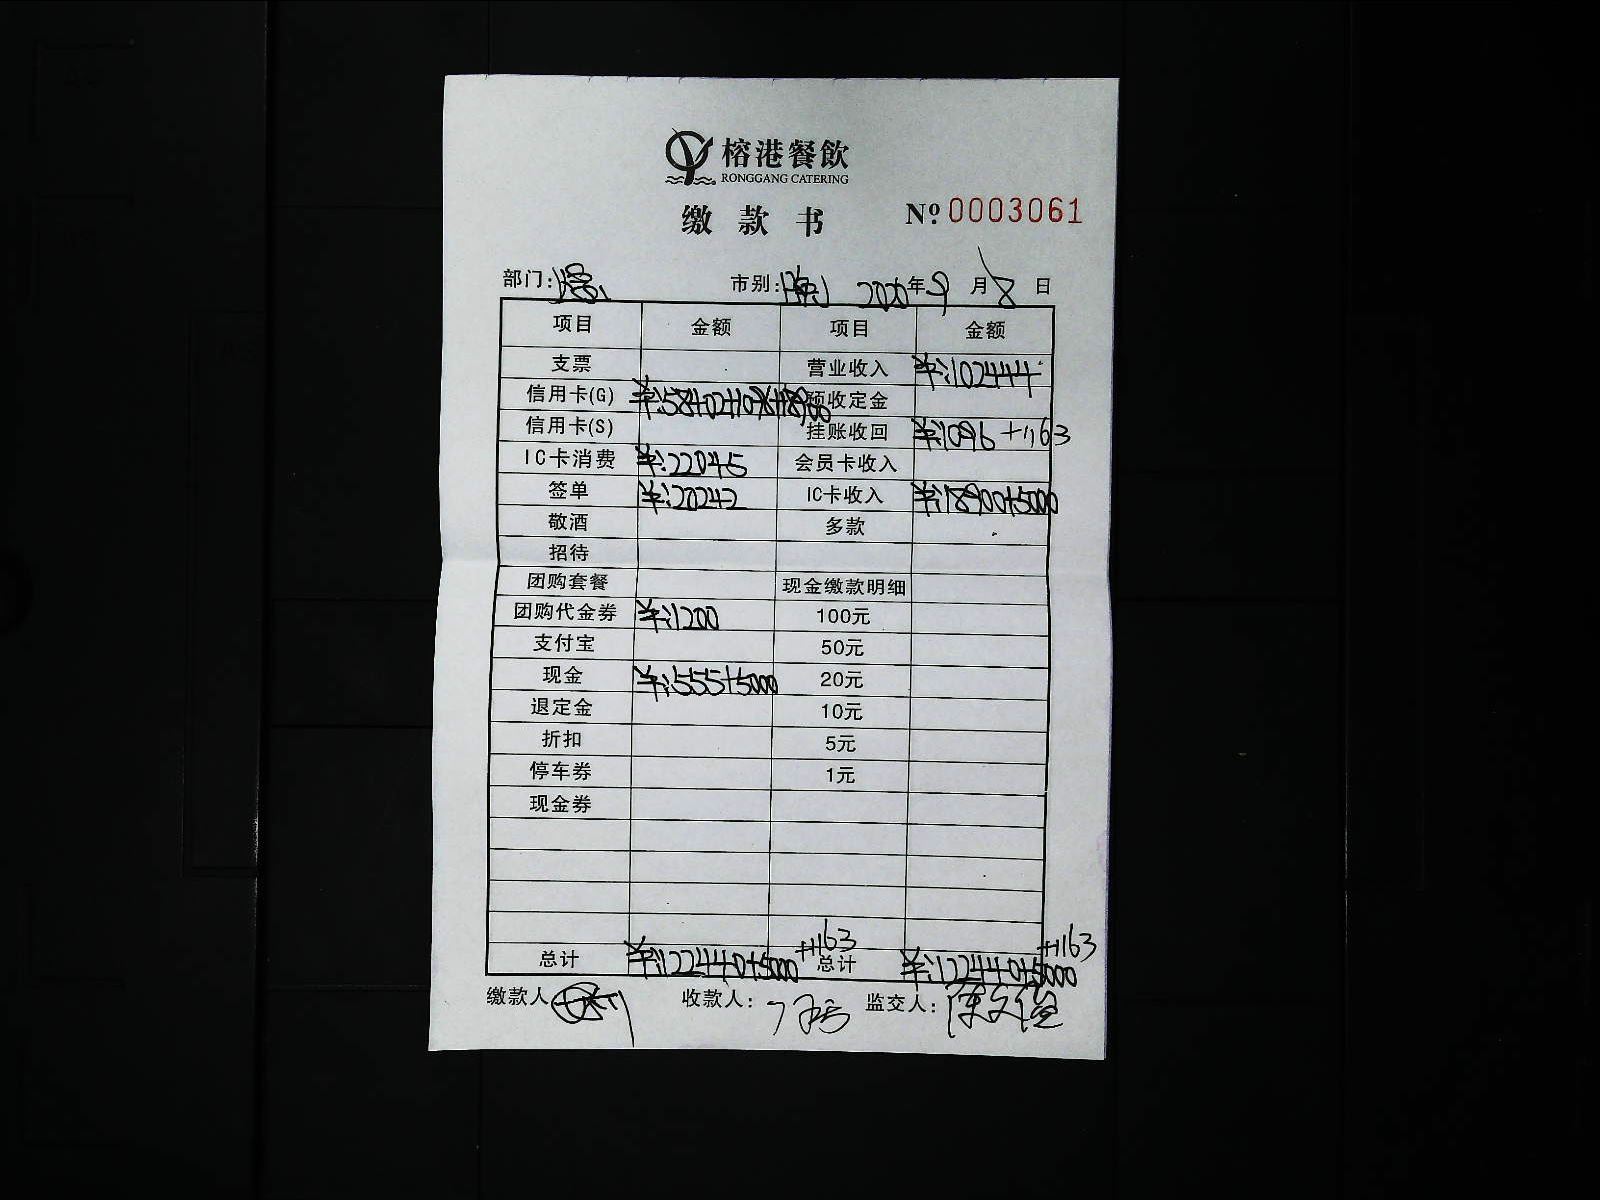 榕港餐飲
RONGGANG CATERING
缴款书
№ 0003061
部门: 市别: 2020年9月8日
项目 金额 项目 金额
支票 营业收入 ¥:102444
信用卡(G) ¥:58402+1096+18900 预收定金
信用卡(S) 挂账收回 ¥:1096+1163
IC卡消费 ¥:22045 会员卡收入
签单 ¥:20242 IC卡收入 ¥:18900+5000
敬酒 多款
招待
团购套餐 现金缴款明细
团购代金券 ¥:1200 100元
支付宝 50元
现金 ¥:555+5000 20元
退定金 10元
折扣 5元
停车券 1元
现金券
+1163 +1163
总计 ¥:122440+5000 总计 ¥:122440+5000
缴款人 收款人: 监交人: